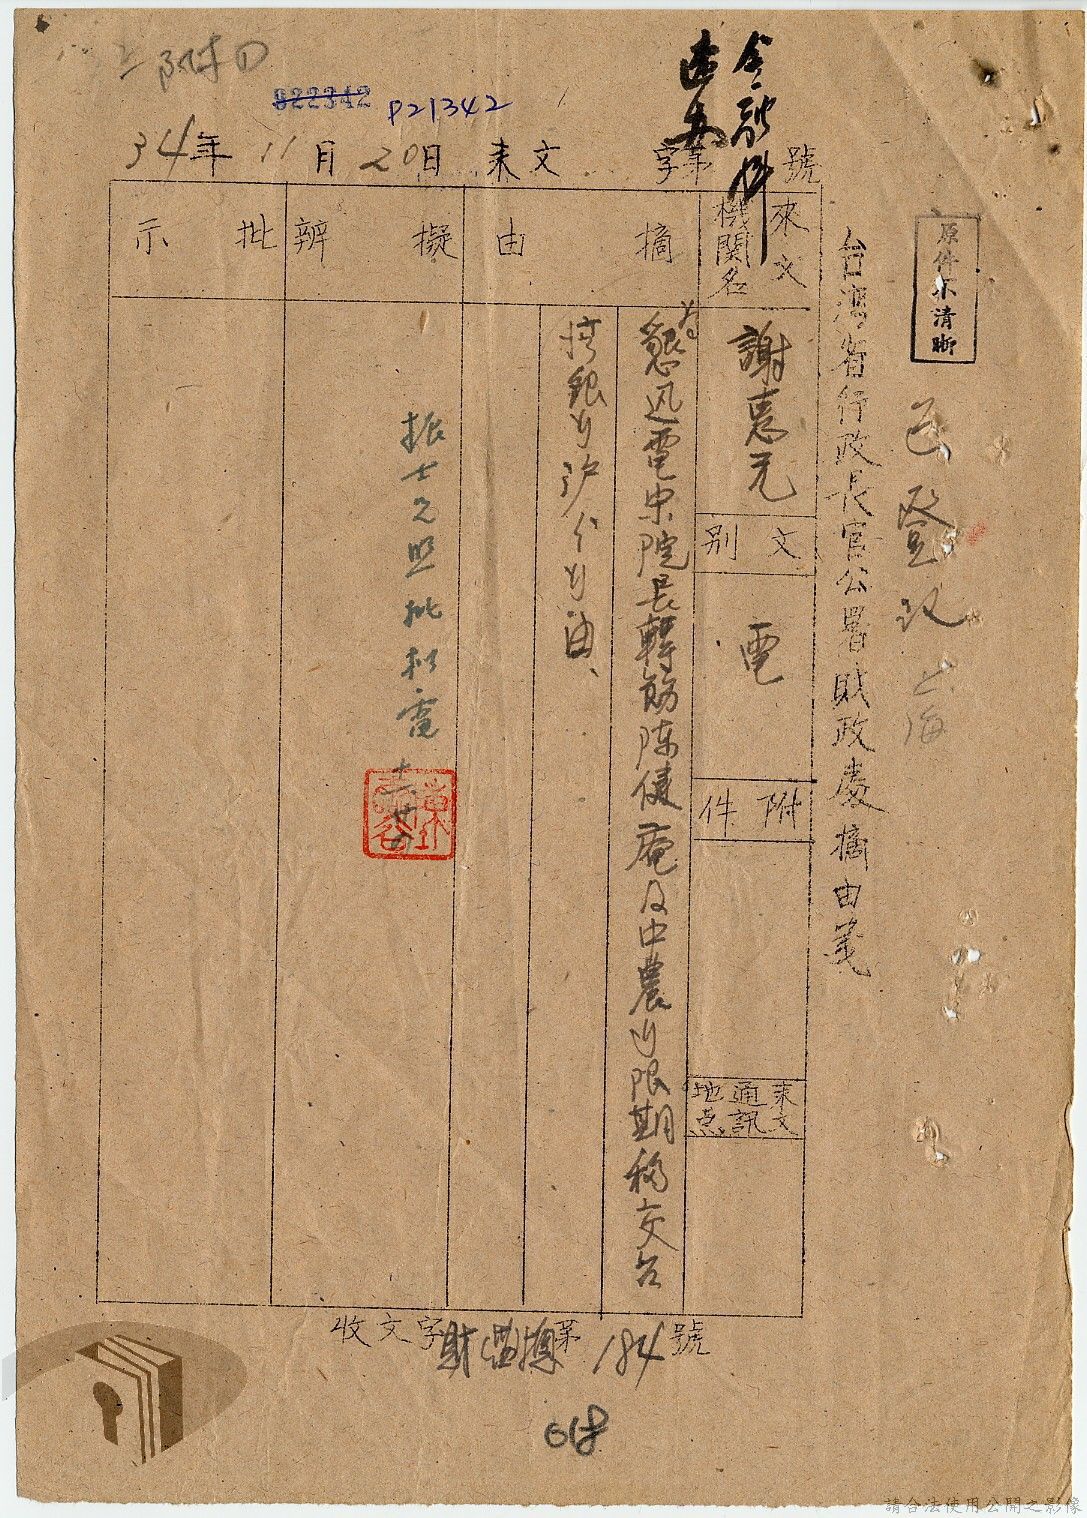 附
822342
P21342
34年11月20日 来文 字第 號
金融科
速办
原件不清晰
已登记
上海
台灣省行政長官公署財政處摘由箋
來文機關名
謝惠元
文別
電
附件
来文通訊地点
摘由
為懇迅電宋院長轉飭陈健庵及中農行限期移交台
湾銀行沪分行由、
擬辦
批示
收文字財 第184號
018
請合法使用公開之影像